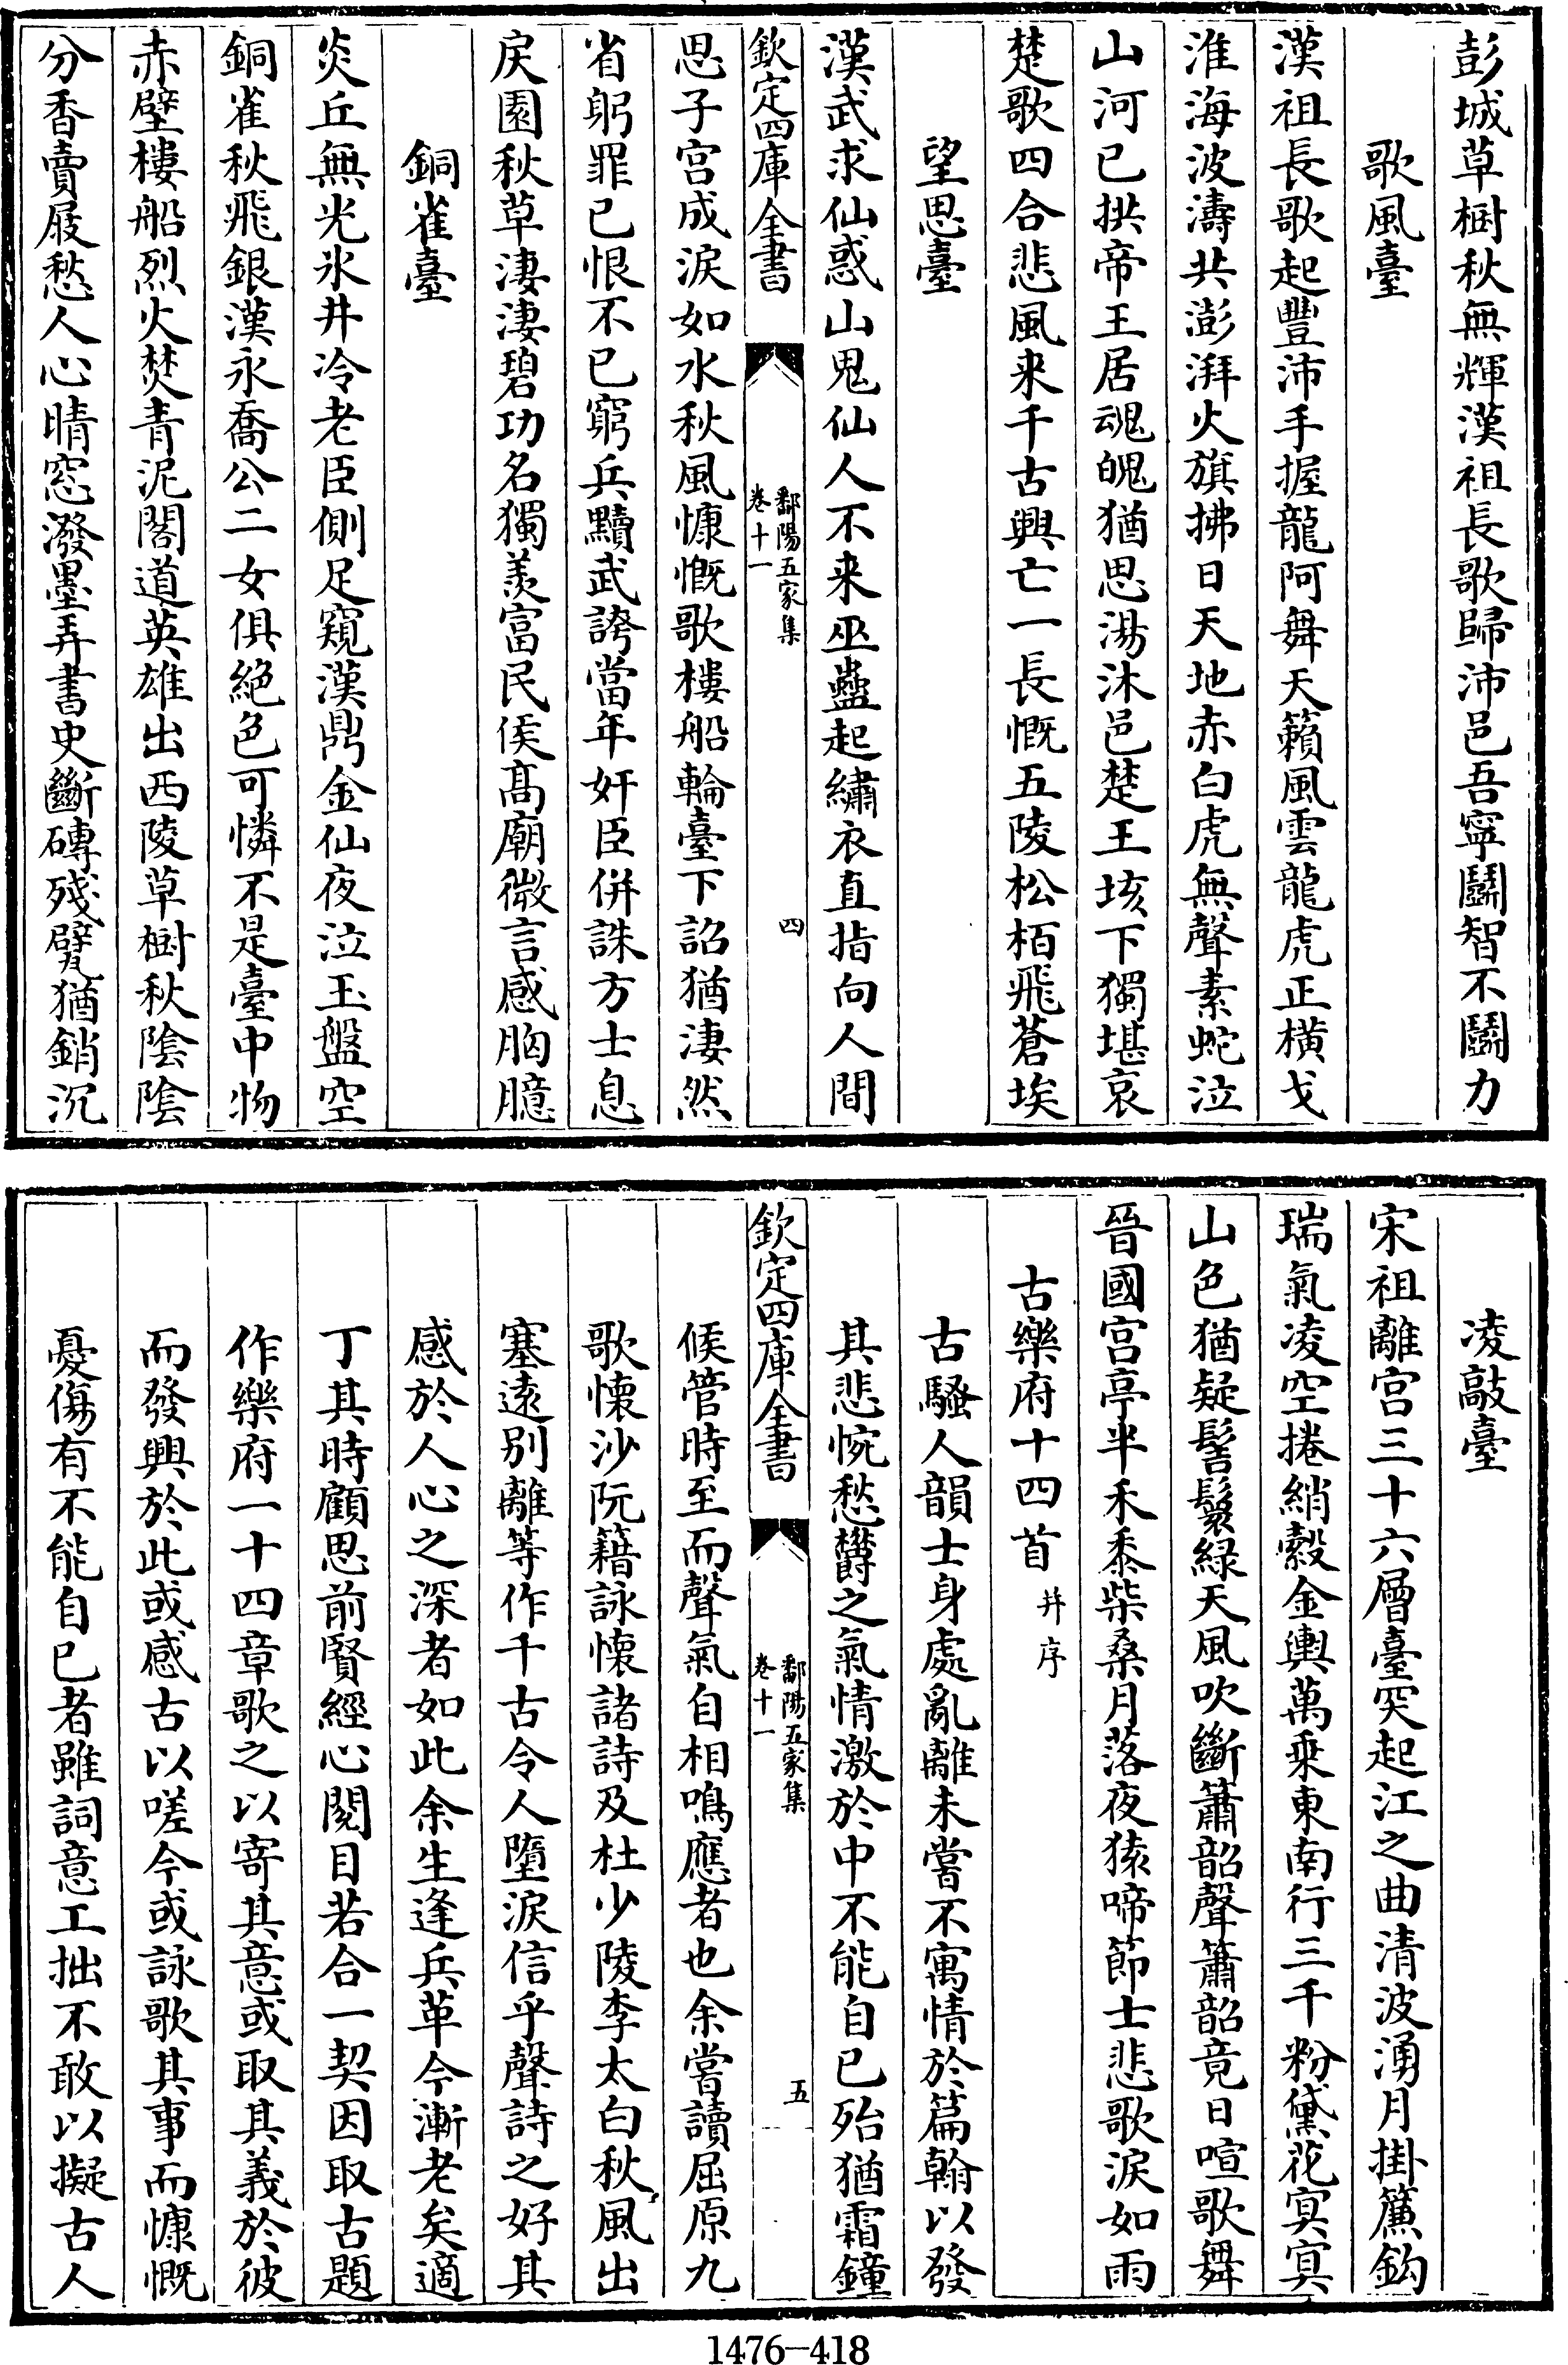 彭城草樹秋無輝漢祖長歌歸沛邑吾寧鬬智不鬬力
歌風臺
漢祖長歌起豐沛手握龍阿舞天籟風雲龍虎正橫戈
淮海波濤共澎湃火旗拂日天地赤白虎無聲素蛇泣
山河已拱帝王居魂魄猶思湯沐邑楚王垓下獨堪哀
楚歌四合悲風来千古興亡一長慨五陵松栢飛蒼埃
望思臺
漢武求仙惑山鬼仙人不来巫蠱起繡衣直指向人間
欽定四庫全書
鄱陽五家集
卷十一
四
思子宫成淚如水秋風慷慨歌樓船輪臺下詔猶淒然
省躬罪已恨不已窮兵黷武誇當年奸臣併誅方士息
戾園秋草淒淒碧功名獨羡富民侯髙廟微言感胸臆
銅雀臺
炎丘無光氷井冷老臣側足窺漢鼎金仙夜泣玉盤空
銅雀秋飛銀漢永喬公二女俱絶色可憐不是臺中物
赤壁樓船烈火焚青泥閣道英雄出西陵草樹秋陰陰
分香賣履愁人心晴窓潑墨弄書史斷磚殘甓猶銷沉
凌敲臺
宋祖離宫三十六層臺突起江之曲清波湧月掛簾鈎
瑞氣凌空捲綃縠金輿萬乗東南行三千粉黛花冥冥
山色猶疑髻鬟緑天風吹斷簫韶聲簫韶竟日喧歌舞
晉國宫亭半禾黍柴桑月落夜猿啼節士悲歌淚如雨
古樂府十四首并序
古騷人韻士身處亂離未嘗不寓情於篇翰以發
其悲惋愁欝之氣情激於中不能自已殆猶霜鐘
欽定四庫全書
鄱陽五家集
卷十一
五
候管時至而聲氣自相鳴應者也余嘗讀屈原九
歌懷沙阮籍詠懷諸詩及杜少陵李太白秋風出
塞逺别離等作千古令人墮淚信乎聲詩之好其
感於人心之深者如此余生逢兵革今漸老矣適
丁其時顧思前賢經心閱目若合一契因取古題
作樂府一十四章歌之以寄其意或取其義於彼
而發興於此或感古以嗟今或詠歌其事而慷慨
憂傷有不能自已者雖詞意工拙不敢以擬古人
1476-418